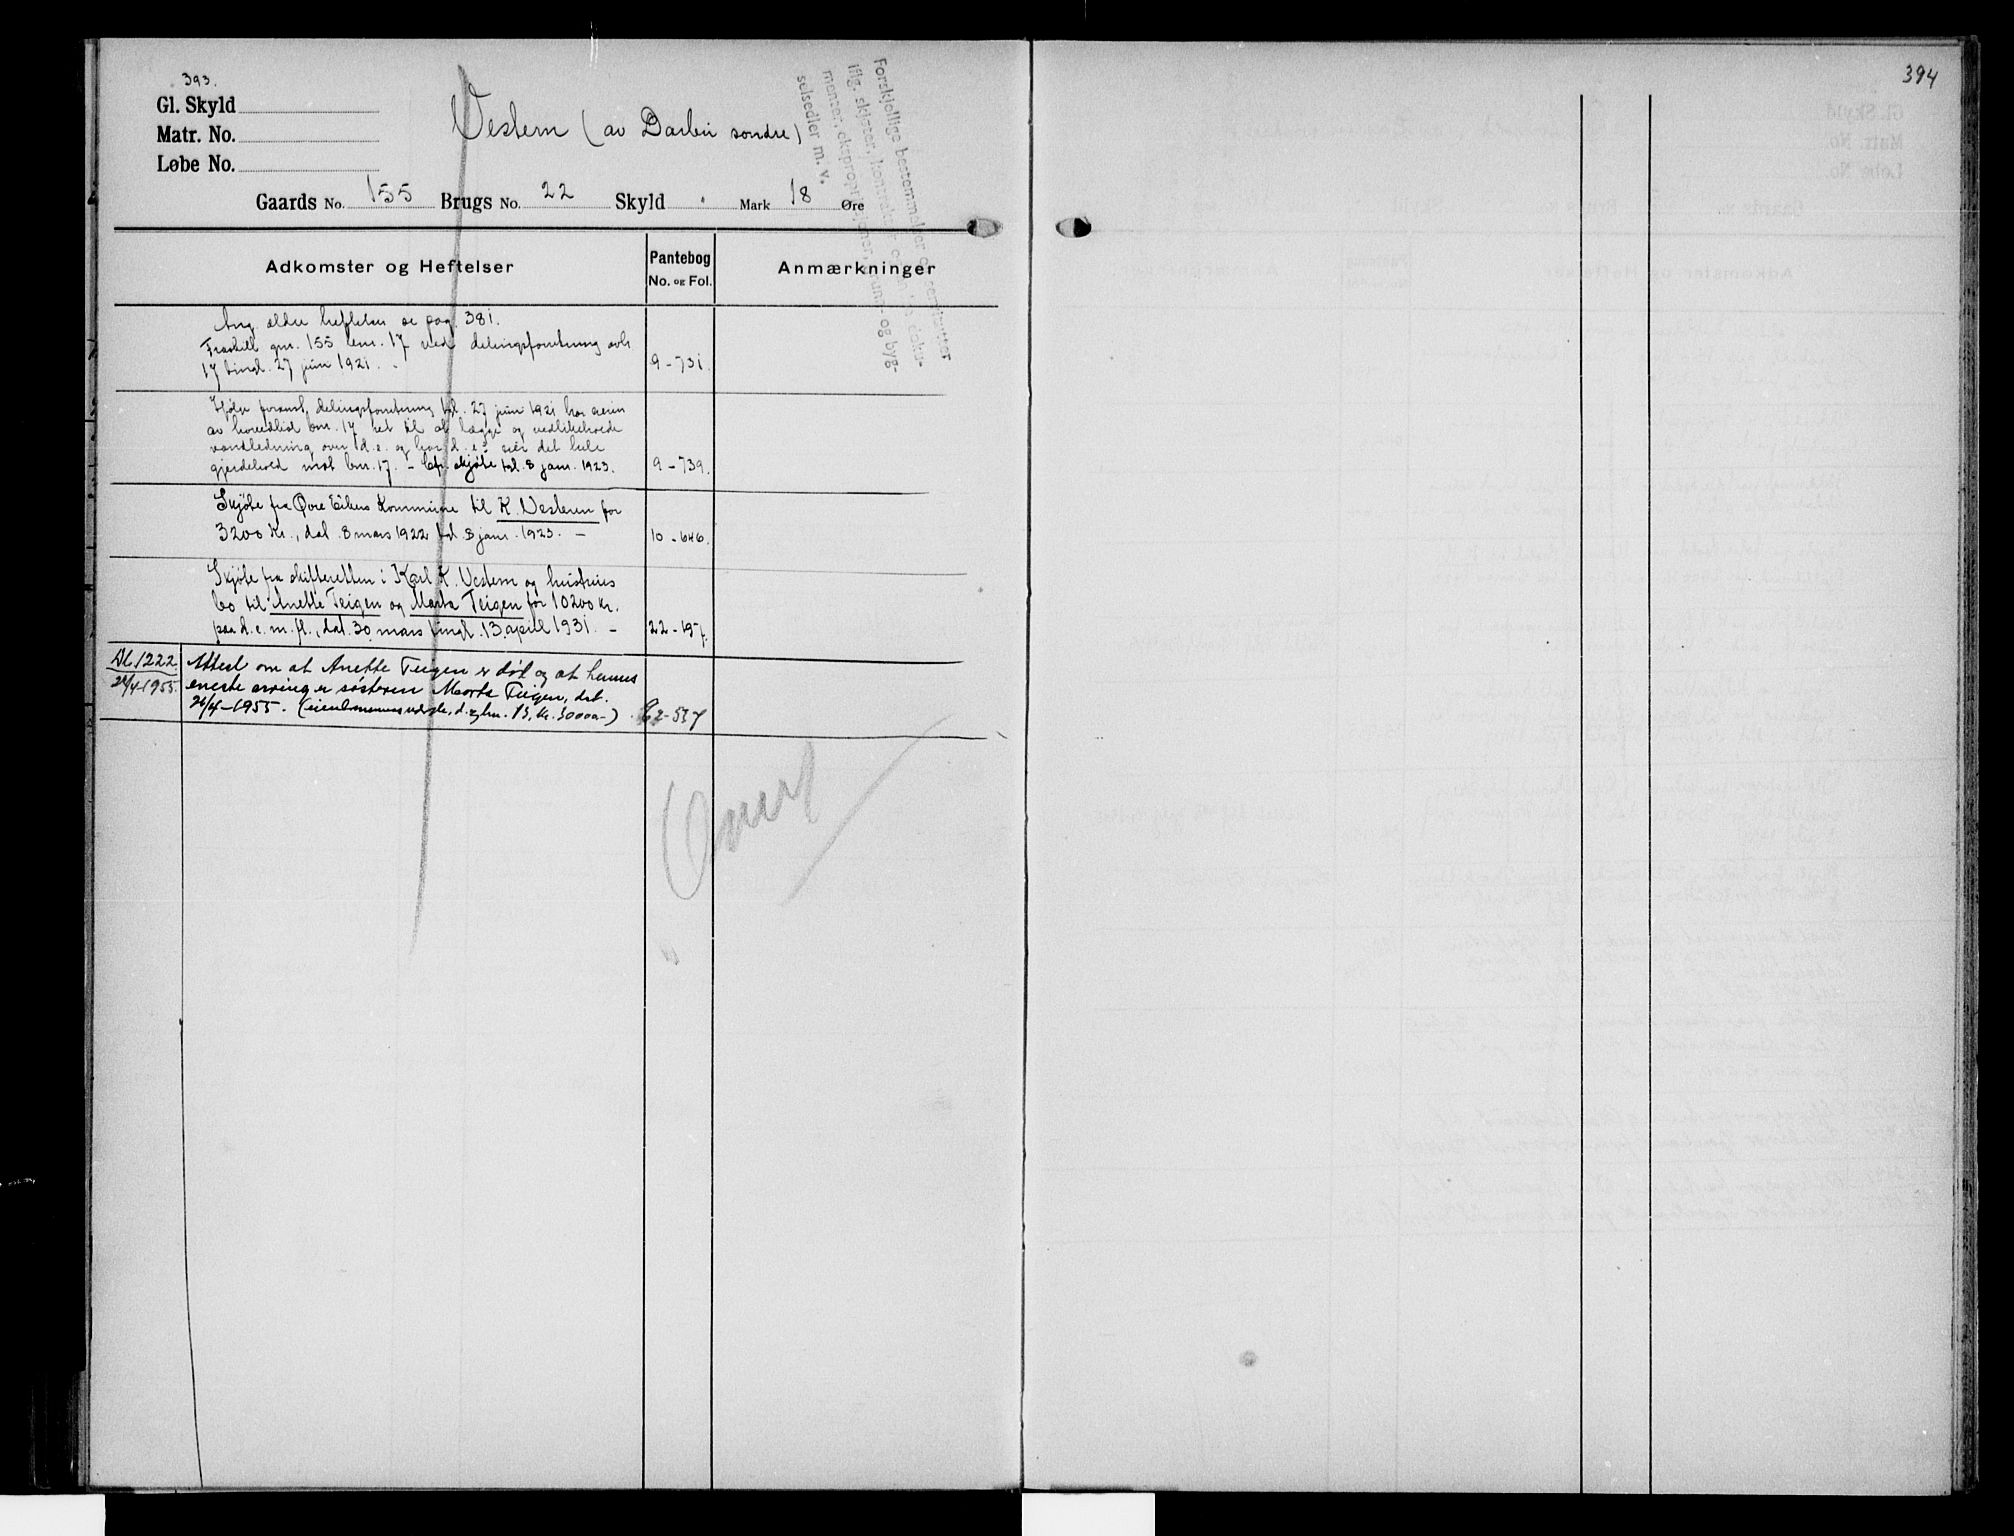 393.
Gl. Skyld
Matr. No.
Løbe No.
Vestern (av Darbu søndre)
Gaards No. 155 Brugs No. 22 Skyld . Mark 18 Øre
Forskjellige bestemmelser og servitutter
iflg. skjøter, kontrakter og andre doku-
menter, ekspropriasjoner, grunn- og byg-
selsedler m. v.
Adkomster og Heftelser
Pantebog
No. og Fol.
Anmærkninger
Ang. ældre heftelser se pag. 381.
Fraskilt gnr. 155 bnr. 17 ved delingsforretning avh.
17 tingl. 27 juni 1921. 9-731.
Ifølge foranst. delingsforretning tgl. 27 juni 1921 har eieren
av hovedbøl bnr. 17 ret til at lægge og vedlikeholde
vandledning over d.e. og har d.e.s eier det hele
gjerdehold mot bnr. 17. - Cfr. skjøte tgl. 8 jan. 1923. 9-739.
Skjøte fra Øvre Eikers Kommune til K. Vesteren for
3200 kr., dat. 8 mars 1922 tgl. 8 jan. 1923. - 10-646.
Skjøte fra skifteretten i Karl K. Vestern og hustrues
bo til Anette Teigen og Marta Teigen for 10200 kr.
paa d.e. m. fl., dat. 30 mars tingl. 13 april 1931. - 22-157.
Dl. 1222 Attest om at Anette Teigen er død og at hennes
26/4-1955. eneste arving er søsteren Marta Teigen, dat.
26/4-1955. 62-537
Overf
394